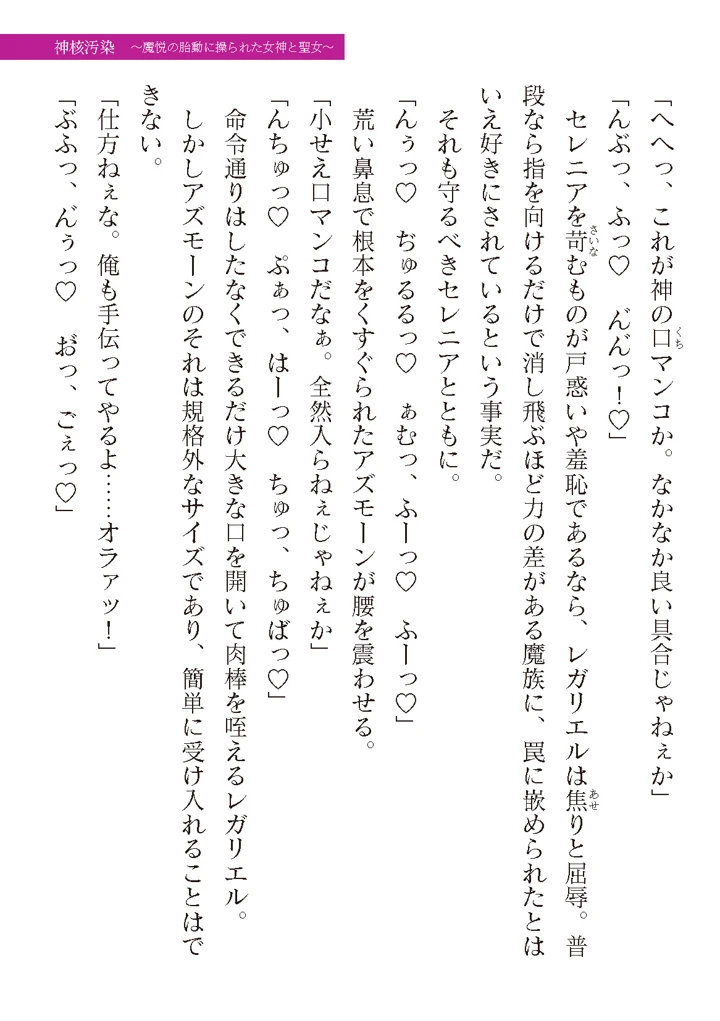 神核汚染　～魔悦の胎動に操られた女神と聖女～
「へへっ、これが神の口マンコか。なかなか良い具合じゃねぇか」
「んぶっ、ふっ♡　ん゛ん゛っ！♡」
セレニアを苛むものが戸惑いや羞恥であるなら、レガリエルは焦りと屈辱。普
段なら指を向けるだけで消し飛ぶほど力の差がある魔族に、罠に嵌められたとは
いえ好きにされているという事実だ。
それも守るべきセレニアとともに。
「んぅっ♡　ぢゅるるっ♡　ぁむっ、ふーっ♡　ふーっ♡」
荒い鼻息で根本をくすぐられたアズモーンが腰を震わせる。
「小せえ口マンコだなぁ。全然入らねぇじゃねぇか」
「んちゅっ♡　ぷぁっ、はーっ♡　ちゅっ、ちゅばっ♡」
命令通りはしたなくできるだけ大きな口を開いて肉棒を咥えるレガリエル。
しかしアズモーンのそれは規格外なサイズであり、簡単に受け入れることはで
きない。
「仕方ねぇな。俺も手伝ってやるよ……オラァッ！」
「ぶふっ、ん゛ぅっ♡　お゛っ、ごぇっ♡」